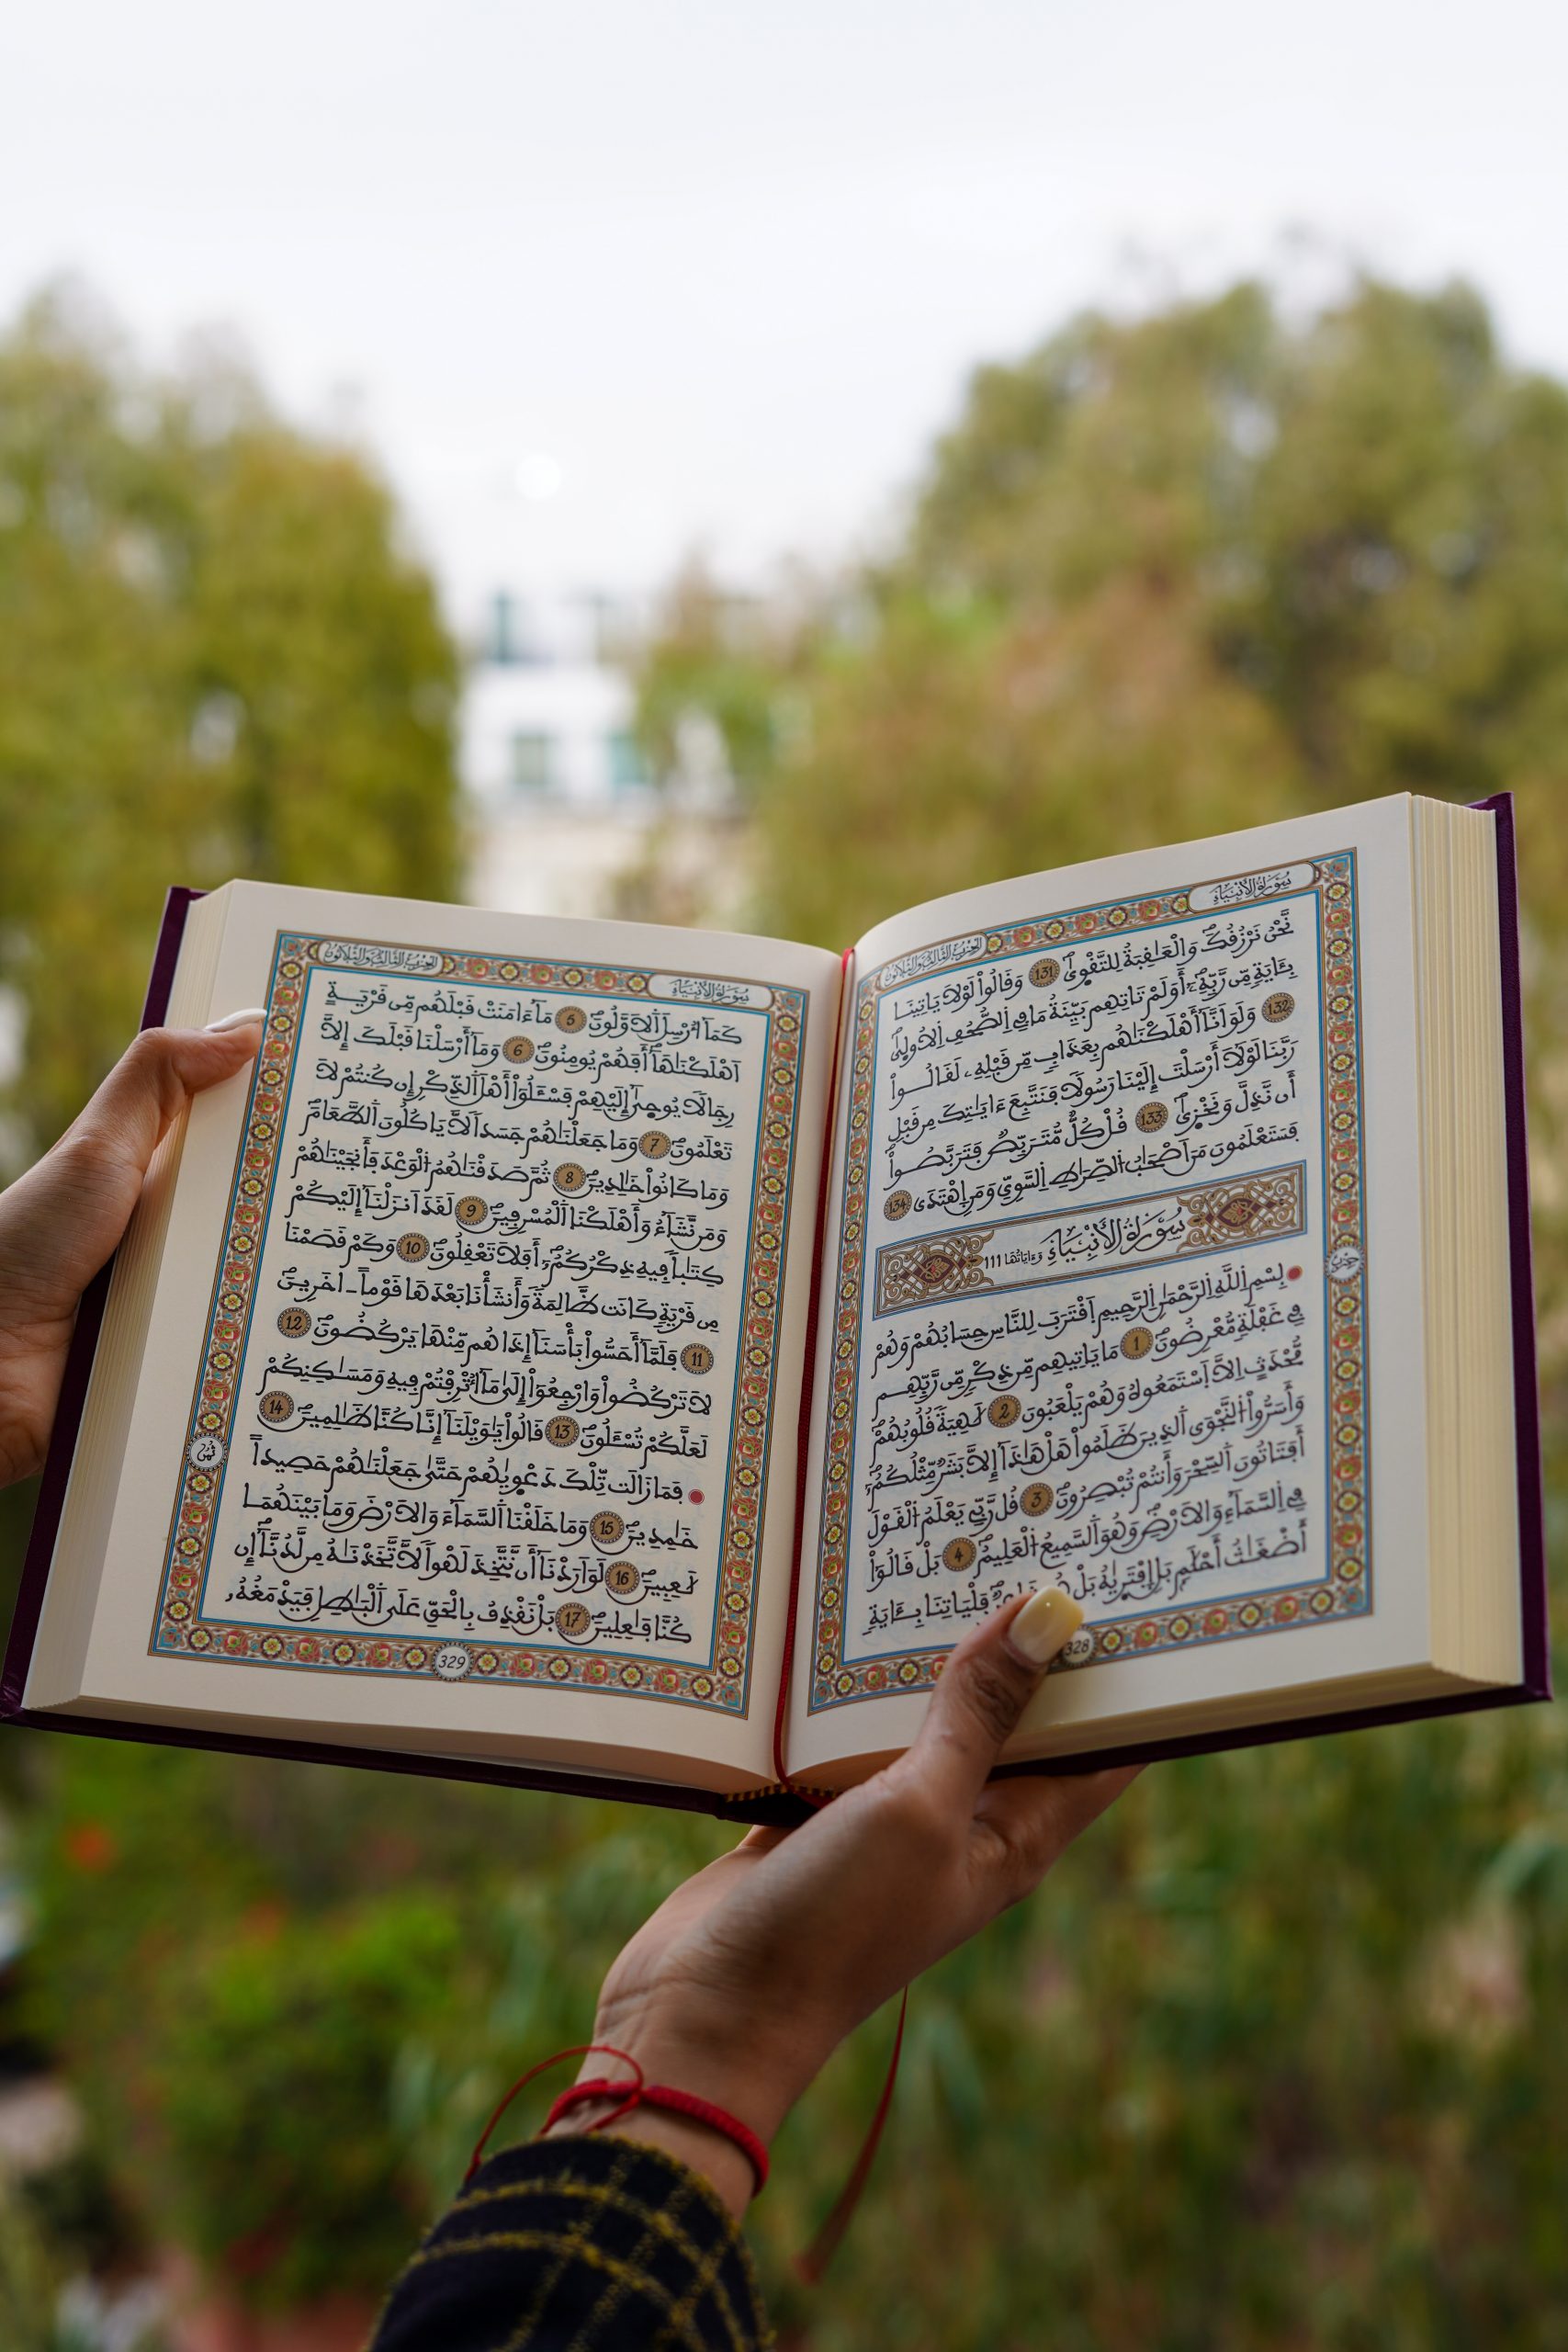 سُورَةُ الْأَنْبِيَاءِ
الحزب الثالث والثلاثون
نَّحْنُ نَرْزُقُكَ وَالْعَٰقِبَةُ لِلتَّقْوَىٰ 131 وَقَالُواْ لَوْلَا يَاتِينَا
بِـَٔايَةٍ مِّن رَّبِّهِۦٓ أَوَلَمْ تَاتِهِم بَيِّنَةُ مَا فِي اِلصُّحُفِ اِلُاولَىٰ
132 وَلَوَ اَنَّآ أَهْلَكْنَٰهُم بِعَذَابٍ مِّن قَبْلِهِۦ لَقَالُواْ
رَبَّنَا لَوْلَآ أَرْسَلْتَ إِلَيْنَا رَسُولًا فَنَتَّبِعَ ءَايَٰتِكَ مِن قَبْلِ
أَن نَّذِلَّ وَنَخْزَىٰ 133 قُلْ كُلٌّ مُّتَرَبِّصٌ فَتَرَبَّصُواْ
فَسَتَعْلَمُونَ مَنَ اَصْحَٰبُ اُلصِّرَٰطِ اِلسَّوِيِّ وَمَنِ اِهْتَدَىٰ 134
سُورَةُ الْأَنْبِيَاءِ وَءَايَاتُهَا 111
بِسْمِ اِللَّهِ اِلرَّحْمَٰنِ اِلرَّحِيمِ اِقْتَرَبَ لِلنَّاسِ حِسَابُهُمْ وَهُمْ
فِي غَفْلَةٍ مُّعْرِضُونَ 1 مَا يَاتِيهِم مِّن ذِكْرٍ مِّن رَّبِّهِم
مُّحْدَثٍ اِلَّا اَسْتَمَعُوهُ وَهُمْ يَلْعَبُونَ 2 لَٰهِيَةً قُلُوبُهُمْ
وَأَسَرُّواْ اُلنَّجْوَى اَلذِينَ ظَلَمُواْ هَلْ هَٰذَآ إِلَّا بَشَرٌ مِّثْلُكُمُۥٓ
أَفَتَاتُونَ اَلسِّحْرَ وَأَنتُمْ تُبْصِرُونَ 3 قُل رَّبِّي يَعْلَمُ اُلْقَوْلَ
فِي اِلسَّمَآءِ وَالَارْضِ وَهُوَ اَلسَّمِيعُ اُلْعَلِيمُ 4 بَلْ قَالُوٓاْ
أَضْغَٰثُ أَحْلَٰمِۢ بَلِ اِفْتَرَىٰهُ بَلْ فَلْيَاتِنَا بِـَٔايَةٍ
328
حزب
سُورَةُ الْأَنْبِيَاءِ
الحزب الثالث والثلاثون
كَمَآ أُرْسِلَ اَلَاوَّلُونَ 5 مَآ ءَامَنَتْ قَبْلَهُم مِّن قَرْيَةٍ
اَهْلَكْنَٰهَآ أَفَهُمْ يُومِنُونَ 6 وَمَآ أَرْسَلْنَا قَبْلَكَ إِلَّا
رِجَالًا يُوحَىٰٓ إِلَيْهِمْ فَسْـَٔلُوٓاْ أَهْلَ اَلذِّكْرِ إِن كُنتُمْ لَا
تَعْلَمُونَ 7 وَمَا جَعَلْنَٰهُمْ جَسَدًا لَّا يَاكُلُونَ اَلطَّعَامَ
وَمَا كَانُواْ خَٰلِدِينَ 8 ثُمَّ صَدَقْنَٰهُمُ اُلْوَعْدَ فَأَنجَيْنَٰهُمْ
وَمَن نَّشَآءُ وَأَهْلَكْنَا اَلْمُسْرِفِينَ 9 لَقَدَ اَنزَلْنَآ إِلَيْكُمْ
كِتَٰبًا فِيهِ ذِكْرُكُمُۥٓ أَفَلَا تَعْقِلُونَ 10 وَكَمْ قَصَمْنَا
مِن قَرْيَةٍ كَانَت ظَّالِمَةً وَأَنشَأْنَا بَعْدَهَا قَوْمًا اٰخَرِينَ
11 فَلَمَّآ أَحَسُّواْ بَأْسَنَآ إِذَا هُم مِّنْهَا يَرْكُضُونَ 12
لَا تَرْكُضُواْ وَارْجِعُوٓاْ إِلَىٰ مَآ أُتْرِفْتُمْ فِيهِ وَمَسَٰكِنِكُمْ
لَعَلَّكُمْ تُسْـَٔلُونَ 13 قَالُواْ يَٰوَيْلَنَآ إِنَّا كُنَّا ظَٰلِمِينَ 14
فَمَا زَالَت تِّلْكَ دَعْوَىٰهُمْ حَتَّىٰ جَعَلْنَٰهُمْ حَصِيدًا
خَٰمِدِينَ 15 وَمَا خَلَقْنَا اَلسَّمَآءَ وَالَارْضَ وَمَا بَيْنَهُمَا
لَٰعِبِينَ 16 لَوَ اَرَدْنَآ أَن نَّتَّخِذَ لَهْوًا لَّاتَّخَذْنَٰهُ مِن لَّدُنَّآ إِن
كُنَّا فَٰعِلِينَ 17 بَلْ نَقْذِفُ بِالْحَقِّ عَلَى اَلْبَٰطِلِ فَيَدْمَغُهُۥ
ثمن
329